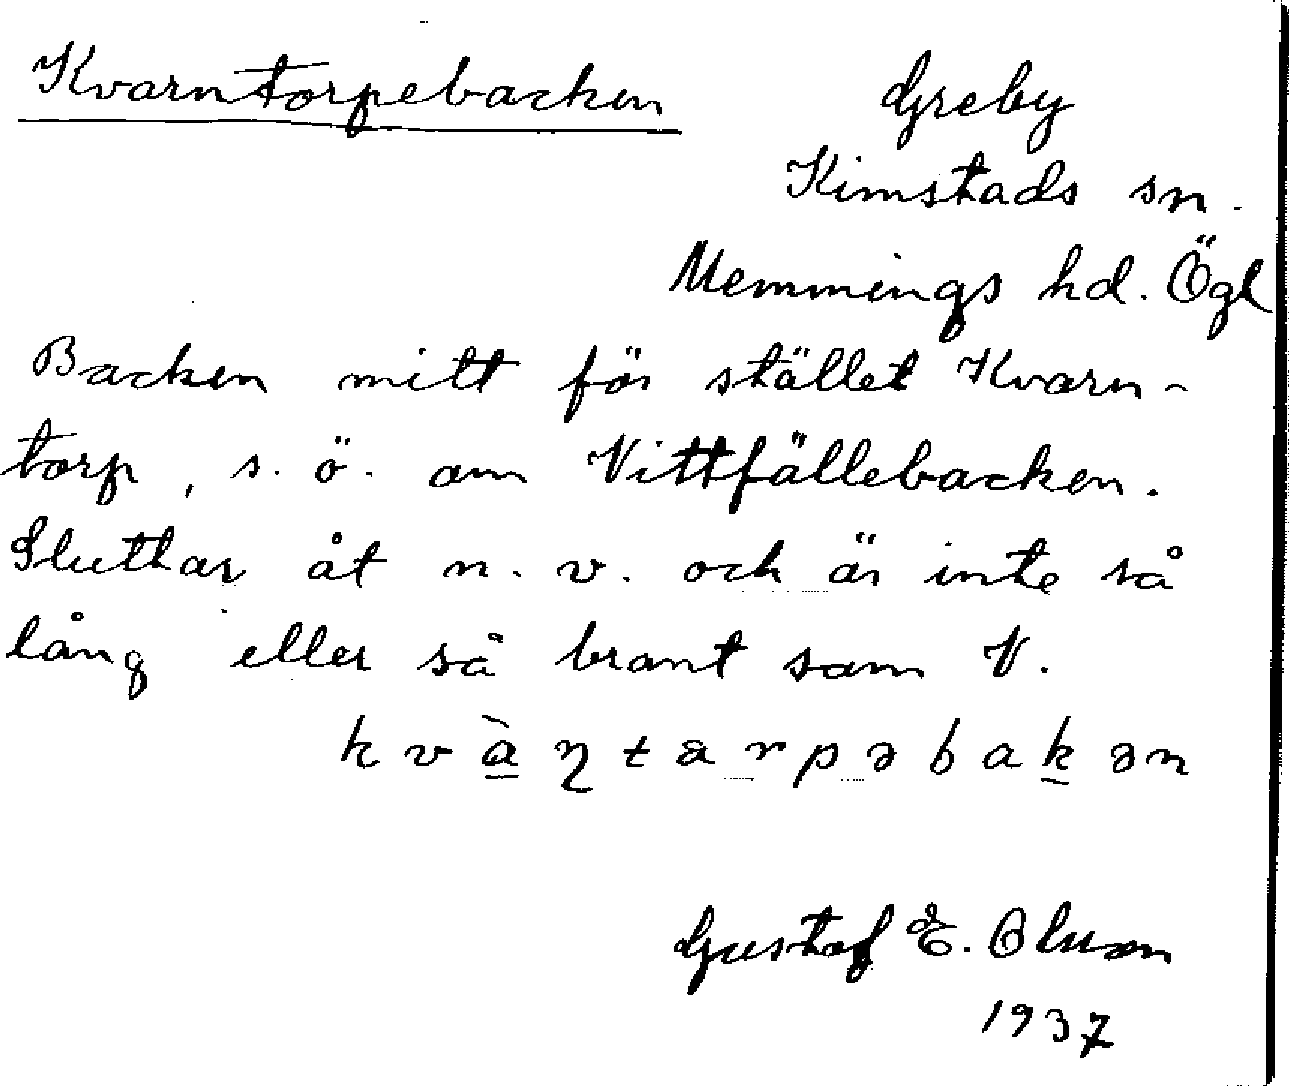 Kvarntorpebacken
Greby
Kimstads sn.
Memmings hd. Ögl
Backen mitt för stället Kvarn-
torp, s. ö. om Vittfällebacken.
Sluttar åt n. v. och är inte så
lång eller så brant som V.
kvàɳtarpəbakən
Gustaf E. Olsson
1937